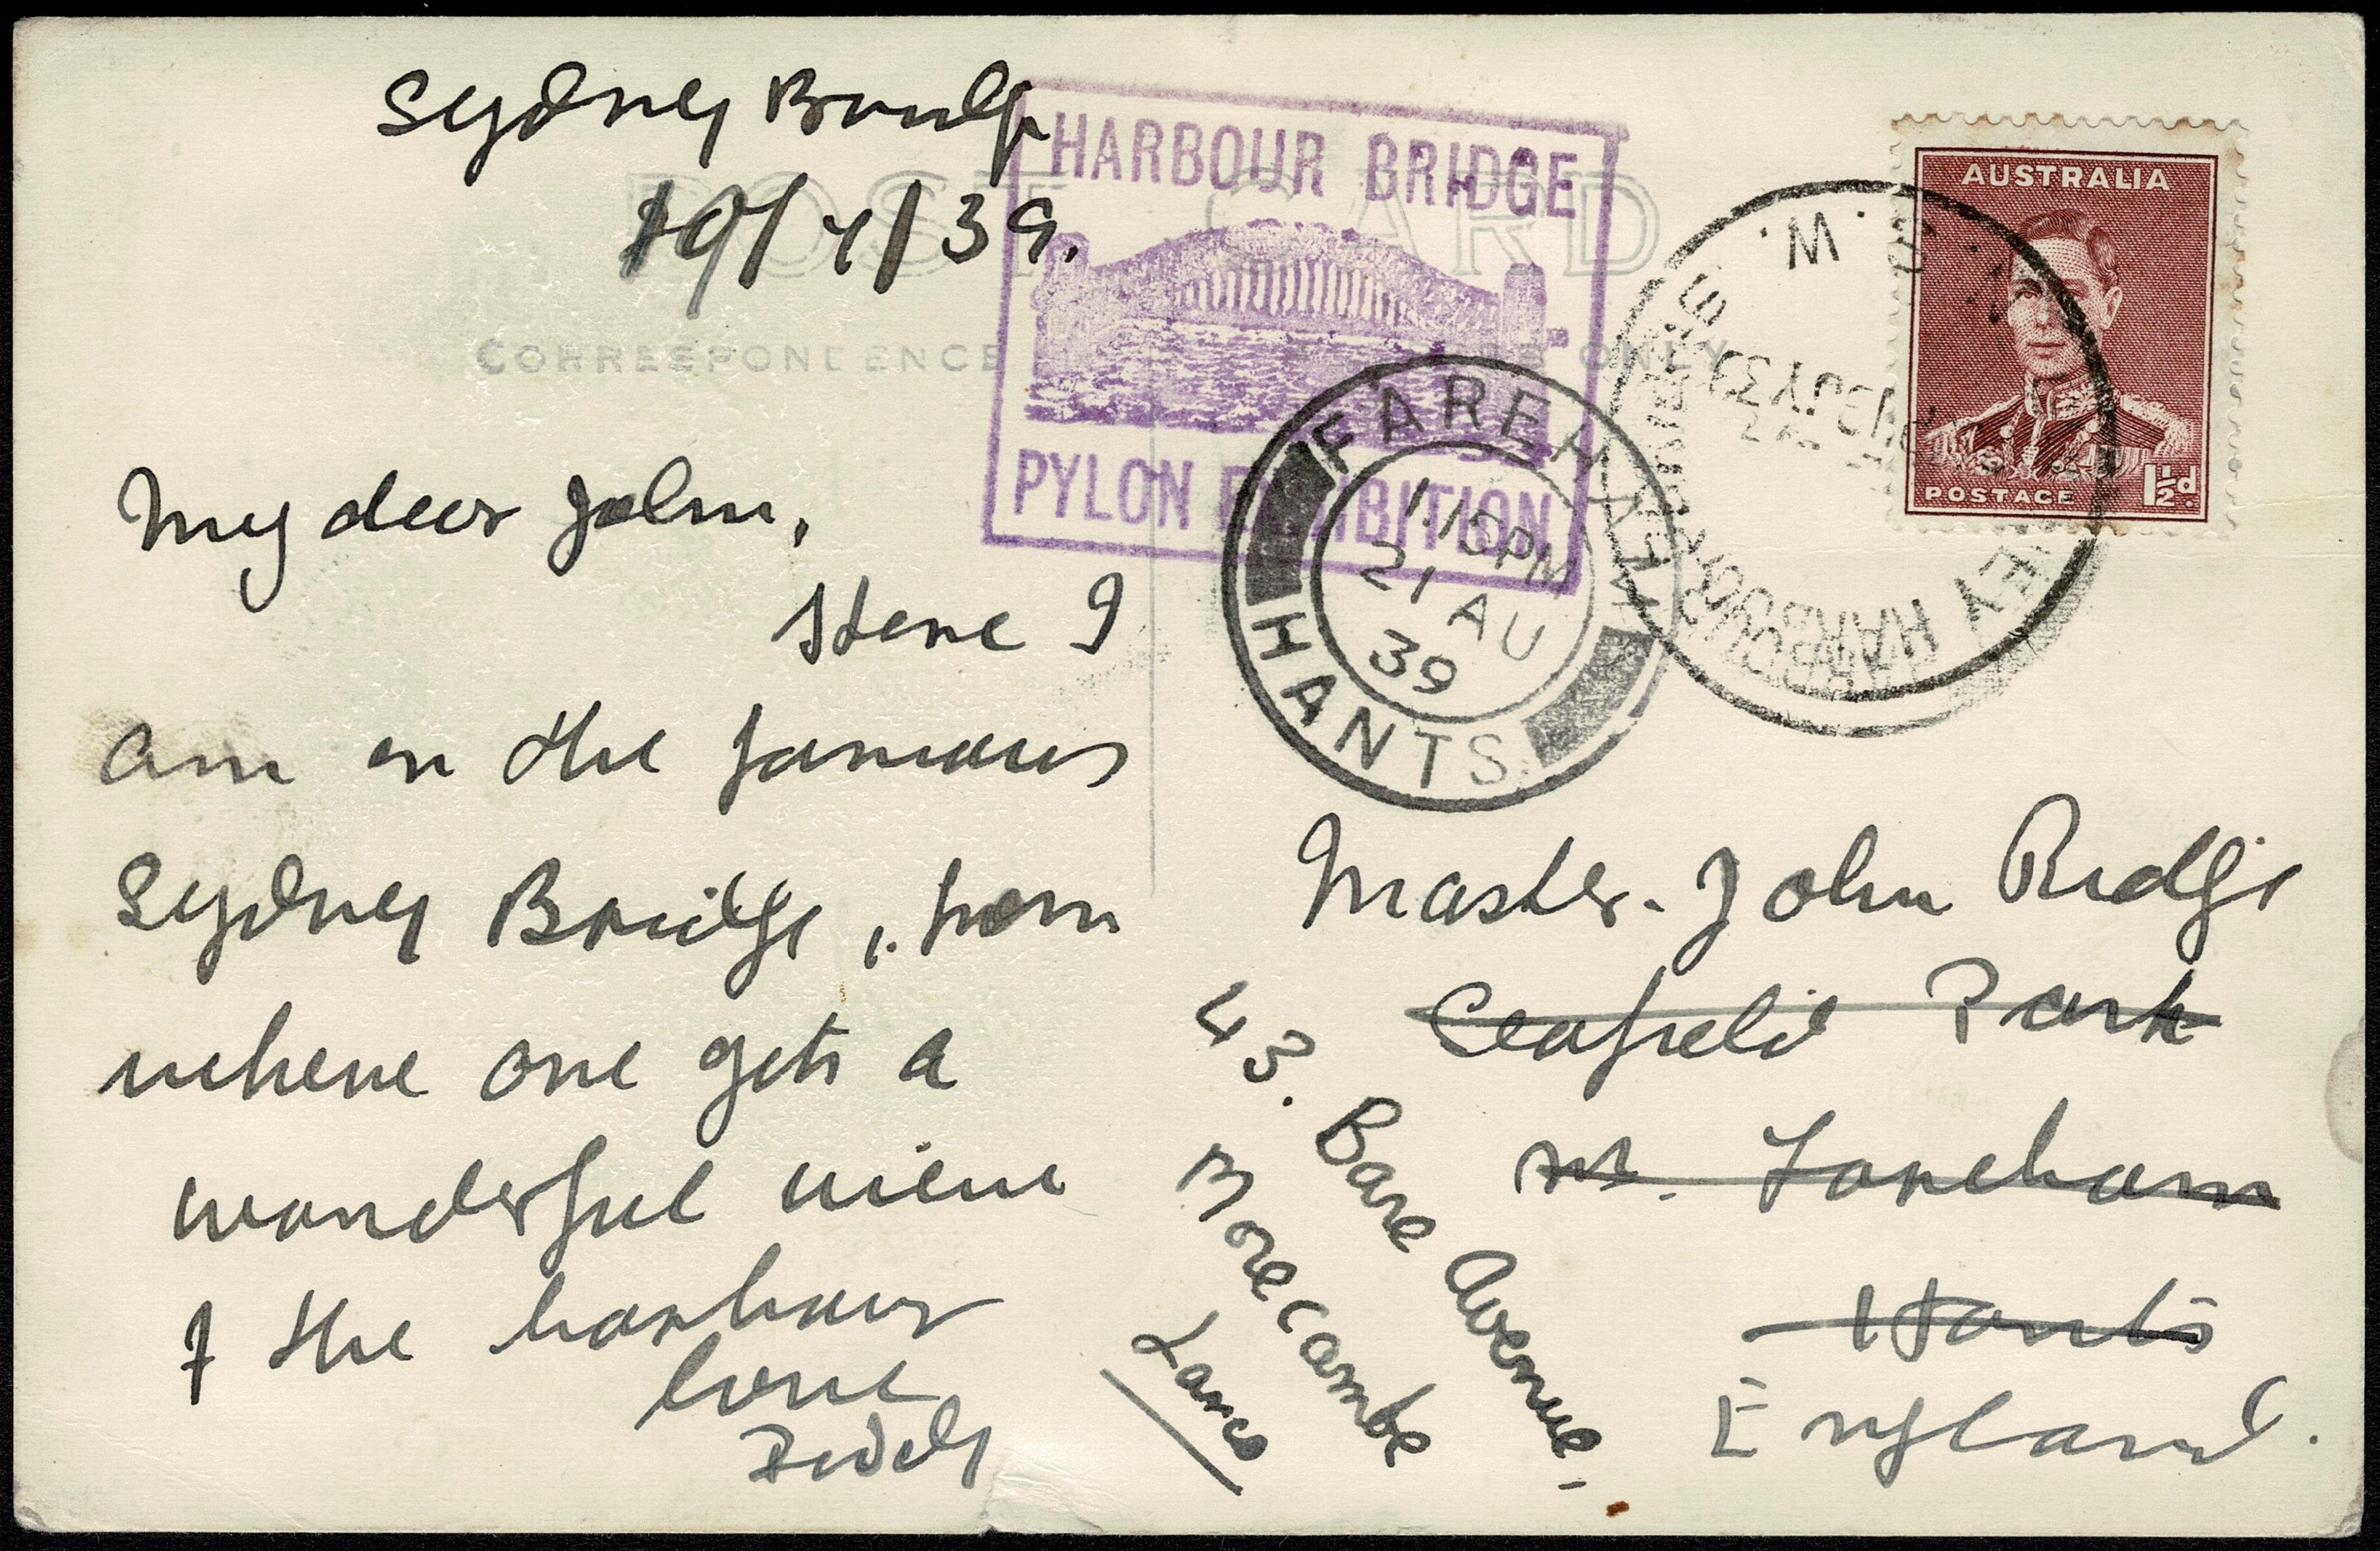 Sydney Bridge
19/7/39.
POST CARD
CORRESPONDENCE
ONLY
HARBOUR BRIDGE
PYLON EXHIBITION
AUSTRALIA
POSTAGE 1½d
FAREHAM
1.15PM
21 AU
39
HANTS
My dear John,
Here I
am on the famous
Sydney Bridge, from
where one gets a
wonderful view
of the harbour
love
Master. John Ridge
Seafield Park
Fareham
Hants
England.
43. Bare Avenue.
Morecambe
Lancs